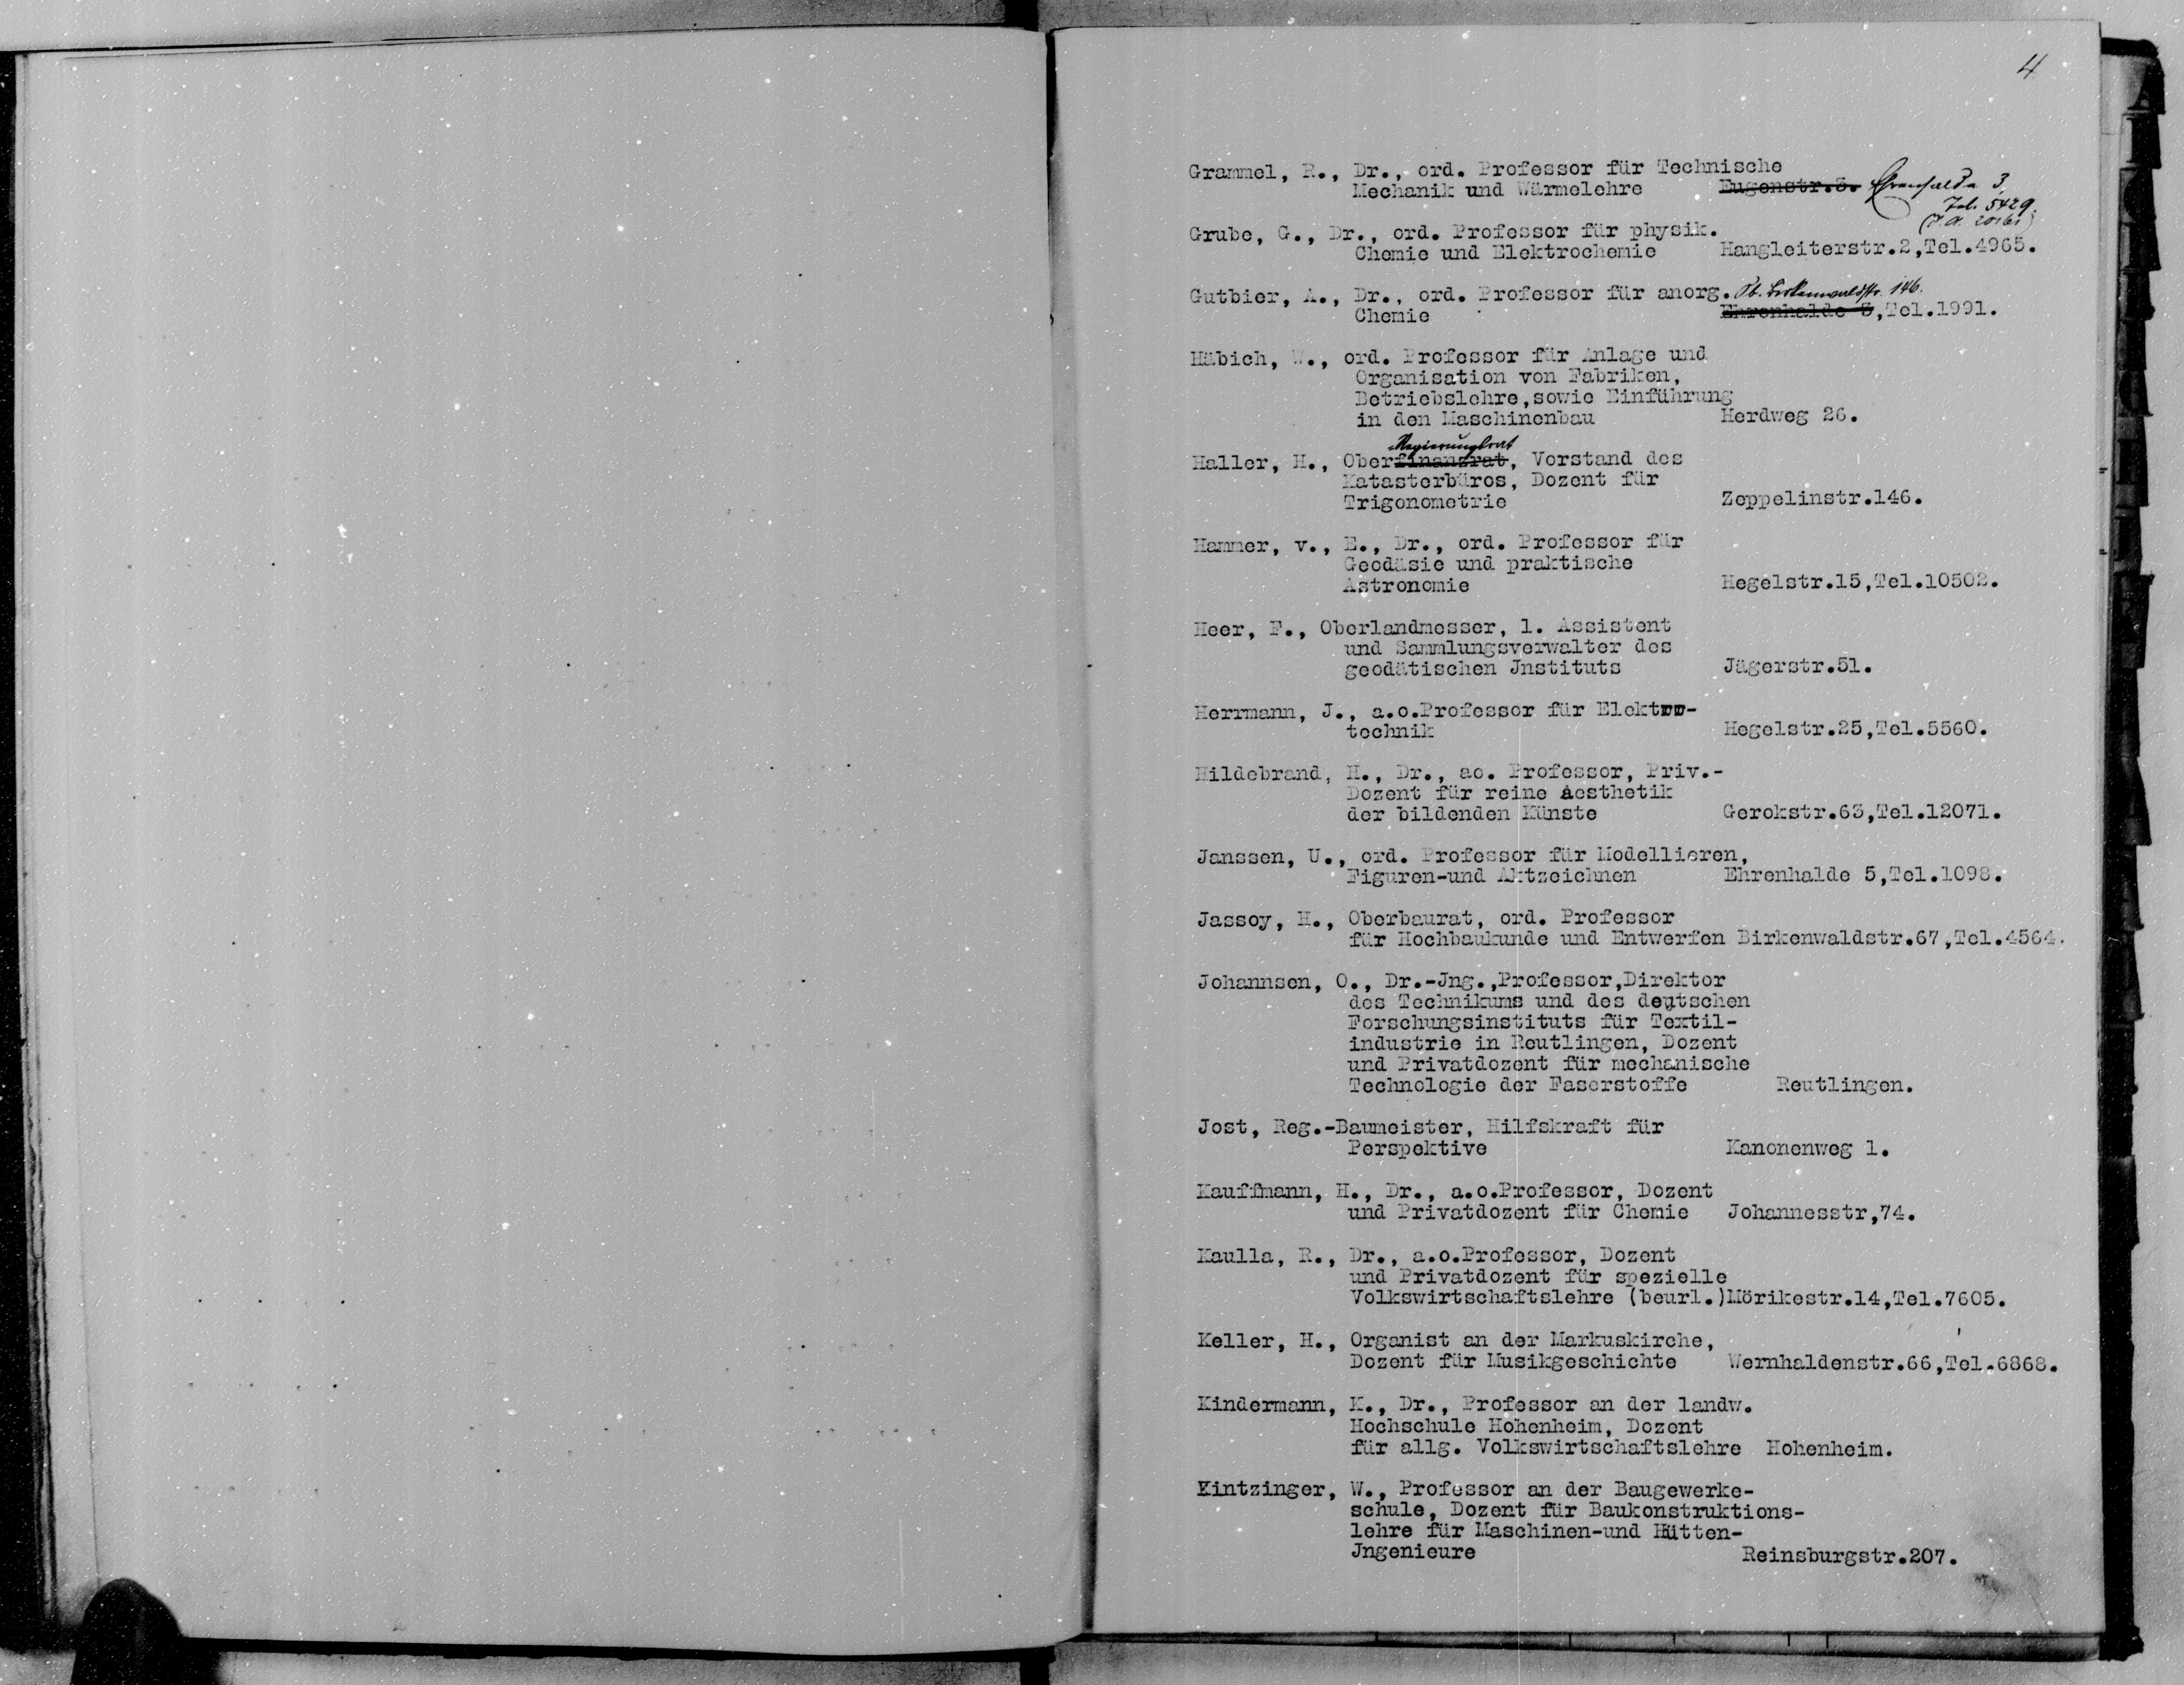 4
Grammel, R., Dr., ord. Professor für Technische
Mechanik und Wärmelehre Eugenstr.3. Ehrenhalde 3,
Tel. 5429.
Grube, G., Dr., ord. Professor für physik.
Chemie und Elektrochemie Hangleiterstr.2,Tel.4965.
Gutbier, A., Dr., ord. Professor für anorg. Ob. Birkenwaldstr. 146.
Chemie Ehrenhalde 3,Tel.1991.
Häbich, W., ord. Professor für Anlage und
Organisation von Fabriken,
Betriebslehre,sowie Einführung
in den Maschinenbau Herdweg 26.
Regierungsrat
Haller, H., Oberfinanzrat, Vorstand des
Katasterbüros, Dozent für
Trigonometrie Zeppelinstr.146.
Hammer, v., E., Dr., ord. Professor für
Geodäsie und praktische
Astronomie Hegelstr.15,Tel.10502.
Heer, F., Oberlandmesser, 1. Assistent
und Sammlungsverwalter des
geodätischen Jnstituts Jägerstr.51.
Herrmann, J., a.o.Professor für Elektro-
technik Hegelstr.25,Tel.5560.
Hildebrand, H., Dr., ao. Professor, Priv.-
Dozent für reine Aesthetik
der bildenden Künste Gerokstr.63,Tel.12071.
Janssen, U., ord. Professor für Modellieren,
Figuren-und Aktzeichnen Ehrenhalde 5,Tel.1098.
Jassoy, H., Oberbaurat, ord. Professor
für Hochbaukunde und Entwerfen Birkenwaldstr.67,Tel.4564.
Johannsen, O., Dr.-Jng.,Professor,Direktor
des Technikums und des deutschen
Forschungsinstituts für Textil-
industrie in Reutlingen, Dozent
und Privatdozent für mechanische
Technologie der Faserstoffe Reutlingen.
Jost, Reg.-Baumeister, Hilfskraft für
Perspektive Kanonenweg 1.
Kauffmann, H., Dr., a.o.Professor, Dozent
und Privatdozent für Chemie Johannesstr,74.
Kaulla, R., Dr., a.o.Professor, Dozent
und Privatdozent für spezielle
Volkswirtschaftslehre (beurl.)Mörikestr.14,Tel.7605.
Keller, H., Organist an der Markuskirche,
Dozent für Musikgeschichte Wernhaldenstr.66,Tel.6868.
Kindermann, K., Dr., Professor an der landw.
Hochschule Hohenheim, Dozent
für allg. Volkswirtschaftslehre Hohenheim.
Kintzinger, W., Professor an der Baugewerke-
schule, Dozent für Baukonstruktions-
lehre für Maschinen-und Hütten-
Jngenieure Reinsburgstr.207.